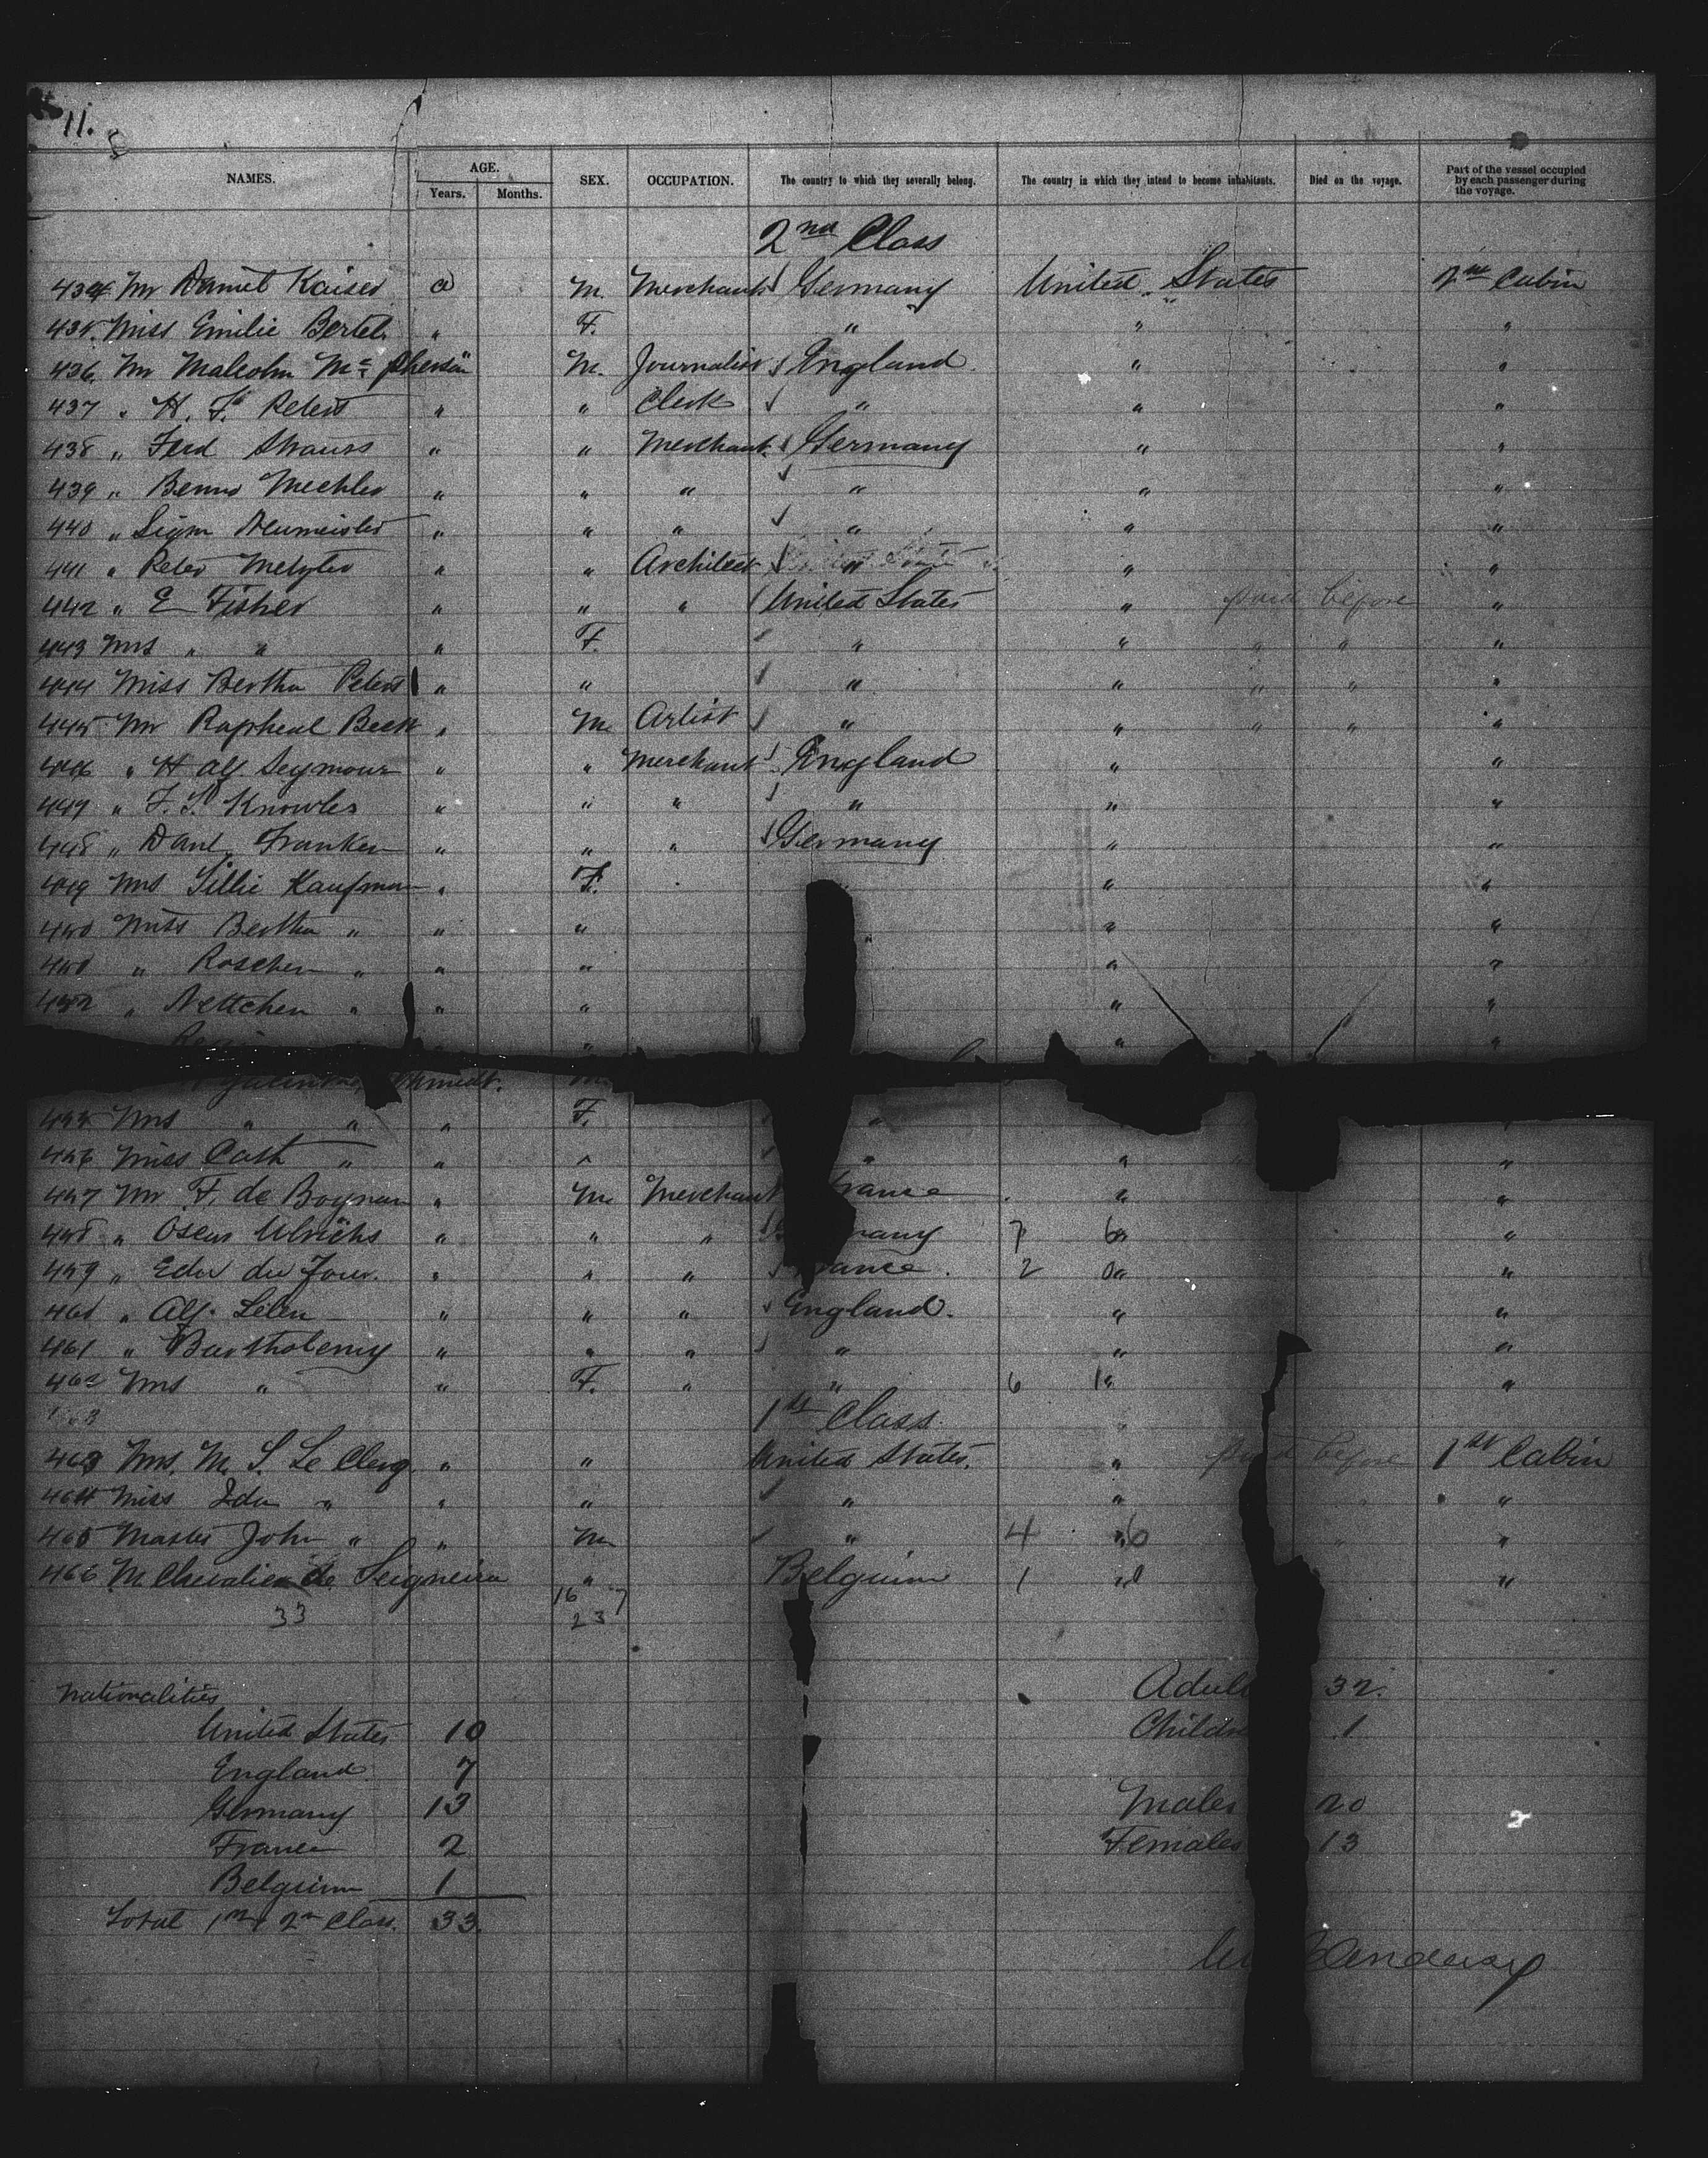 11.
NAMES. AGE. Years. Months. SEX. OCCUPATION. The country to which they severally belong. The country in which they intend to become inhabitants. Died on the voyage. Part of the vessel occupied by each passenger during the voyage.
2nd Class
434 Mr Daniel Kaiser a M. Merchant Germany United States 2nd Cabin
435 Miss Emilie Bertel " F. " " "
436 Mr Malcolm Mc Pherson " M. Journalist England " "
437 " H. F. Peters " " Clerk " " "
438 " Ferd Strauss " " Merchant Germany " "
439 " Benno Mechler " " " " " "
440 " Sigm Neumeister " " " " " "
441 " Peter Metzler " " Architect " " "
442 " E Fisher " " " United States " paid before "
443 Mrs " " " F. " " " " "
444 Miss Bertha Peters " " " " " " "
445 Mr Rapheal Beck " M Artist " " " " "
446 " H Alf. Seymour " " Merchant England " "
447 " F. S. Knowles " " " " " "
448 " Danl. Franken " " " Germany " "
449 Mrs Tillie Kaufman " F. " "
450 Miss Bertha " " " " "
451 " Roschen " " " " "
452 " Nettchen " " " " "
" " "
Schmidt. M
455 Mrs " " " F. "
456 Miss Cath " " " " " "
457 Mr F. de Boyneau " M Merchant France " "
458 " Oscar Ulrichs " " " Germany 7 6 " "
459 " Edu du Four. " " " France. 2 0 " "
460 " Alf. Lelen " " " England. " "
461 " Bartholemy " " " " " "
462 Mrs " " F. " " 6 1 " "
1st Class
463 Mrs. M. S. Le Clerq " " United States. " paid before 1st Cabin
464 Miss Ida " " " " " " "
465 Master John " " M " 4 6 " "
466 M Chevalier de Seigneira " Belgium 1 " "
33 16 7
23
Nationalities Adults 32.
United States 10 Children 1
England 7
Germany 13 Males 20
France 2 Females 13
Belgium 1
Total 1st & 2nd Class. 33.